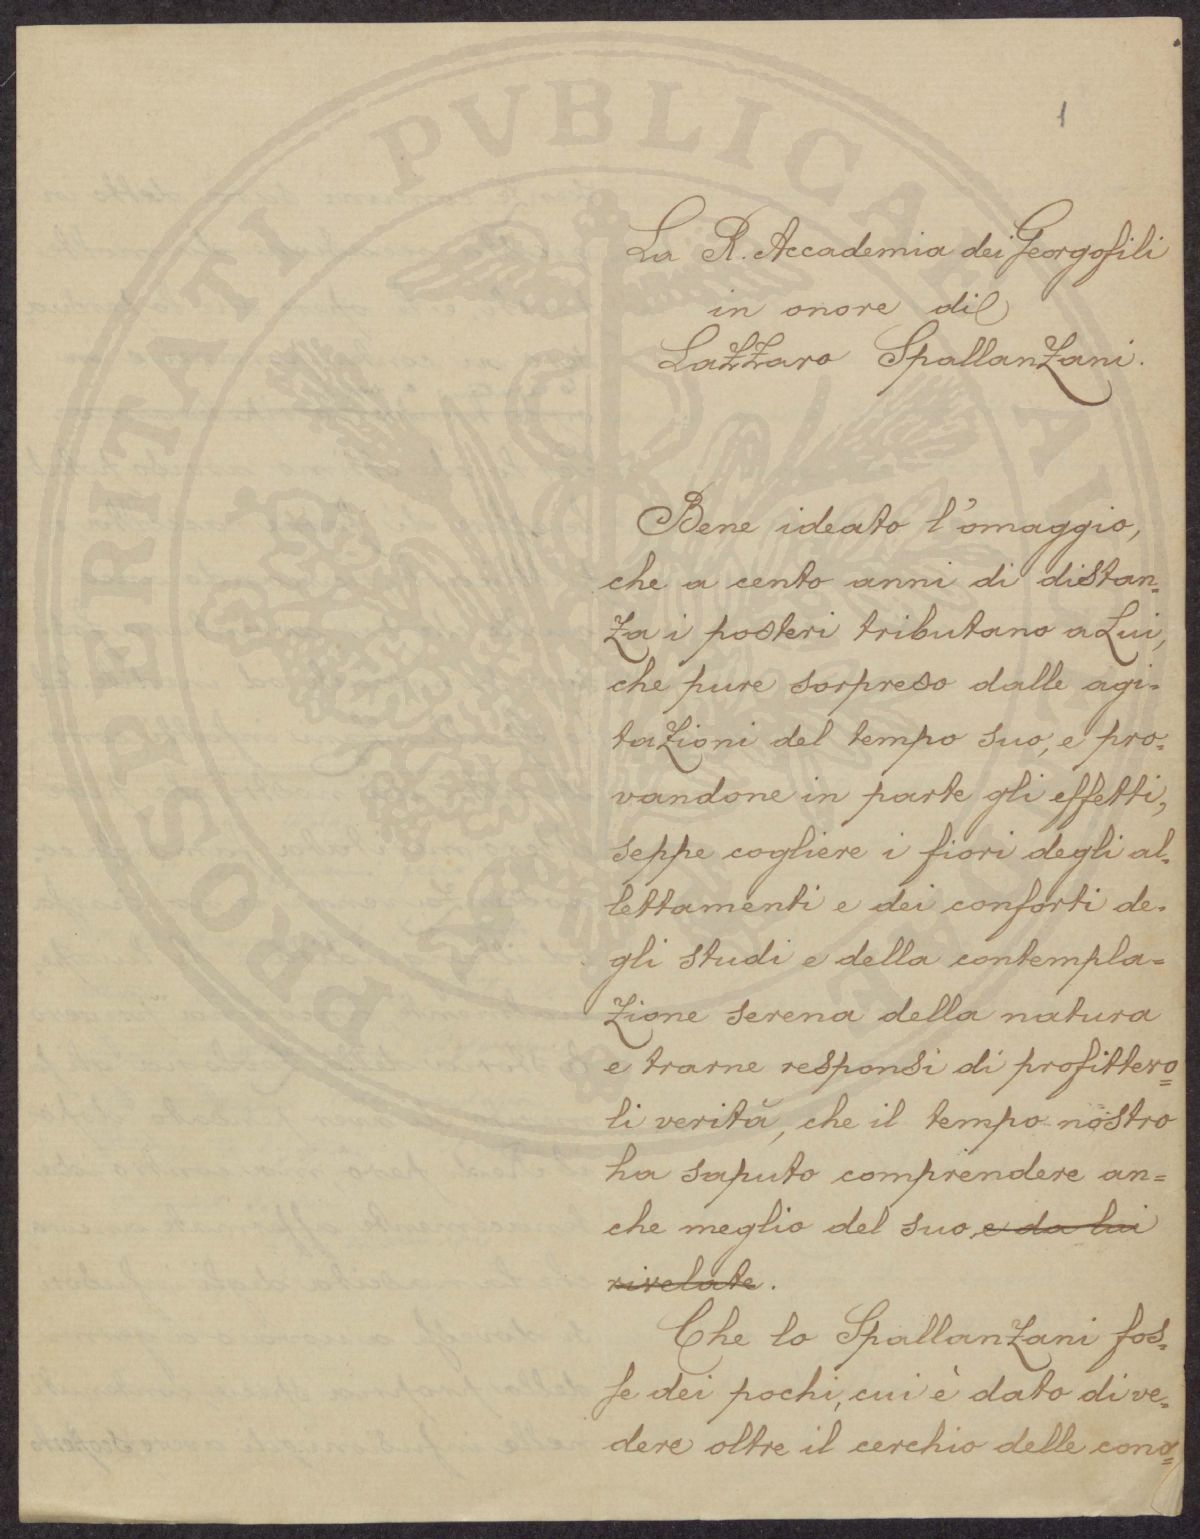 1
La R. Accademia dei Georgofili
in onore di
Lazzaro Spallanzani.
Bene ideato l'omaggio,
che a cento anni di distan=
za i posteri tributano a Lui,
che pure sorpreso dalle agi=
tazioni del tempo suo, e pro=
vandone in parte gli effetti,
seppe cogliere i fiori degli al=
lettamenti e dei conforti de=
gli studi e della contempla=
zione serena della natura
e trarne responsi di profittevo=
li verità, che il tempo nostro
ha saputo comprendere an=
che meglio del suo e da lui
rivelate.
Che lo Spallanzani fos=
se dei pochi, cui è dato di ve=
dere oltre il cerchio delle cono=
PROSPERITATI PVBLICAE AV